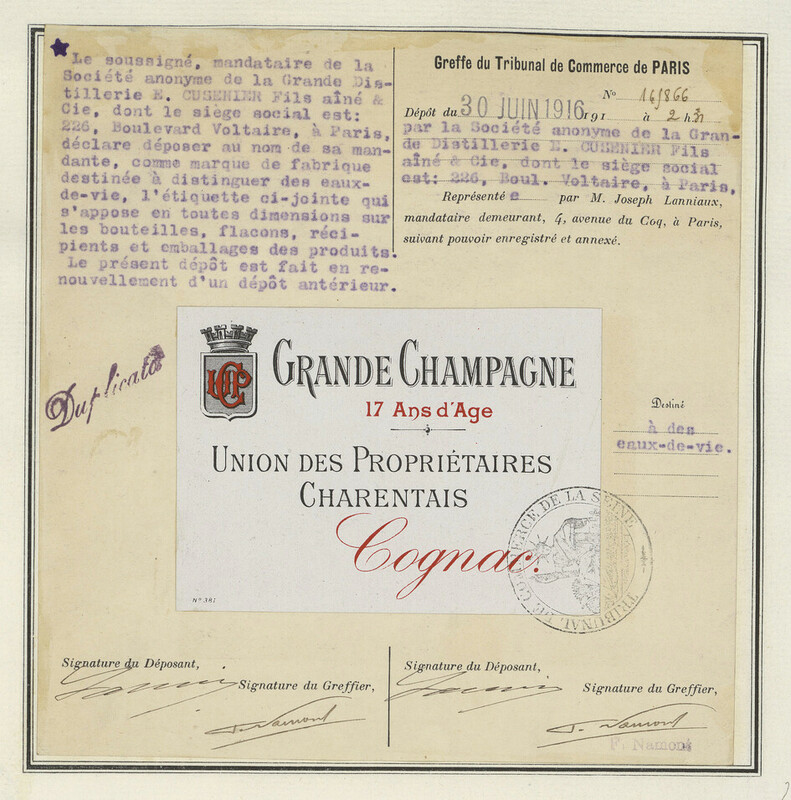 Le soussigné, mandataire de la
Société anonyme de la Grande Dis-
tillerie E. CUSENIER Fils aîné &
Cie, dont le siège social est:
226, Boulevard Voltaire, à Paris,
déclare déposer au nom de sa man-
dante, comme marque de fabrique
destinée à distinguer des eaux-
de-vie, l'étiquette ci-jointe qui
s'appose en toutes dimensions sur
les bouteilles, flacons, réci-
pients et emballages des produits.
Le présent dépôt est fait en re-
nouvellement d'un dépôt antérieur.
Greffe du Tribunal de Commerce de PARIS
No
Dépôt du 30 JUIN 1916 191 à 2 h
par la Société anonyme de la Gran-
de Distillerie E. CUSENIER Fils
aîné & Cie, dont le siège social
est: 226, Boul. Voltaire, à Paris,
Représentée par M. Joseph Lanniaux,
mandataire demeurant, 4, avenue du Coq, à Paris,
suivant pouvoir enregistré et annexé.
Duplicata
GRANDE CHAMPAGNE
17 Ans d'Age
UNION DES PROPRIÉTAIRES
CHARENTAIS
Cognac.
No 381
Destiné
à des
eaux-de-vie.
TRIBUNAL DE COMMERCE DE LA SEINE
Signature du Déposant,
Signature du Greffier,
F. Namont
Signature du Déposant,
Signature du Greffier,
F. Namont
F. Namont